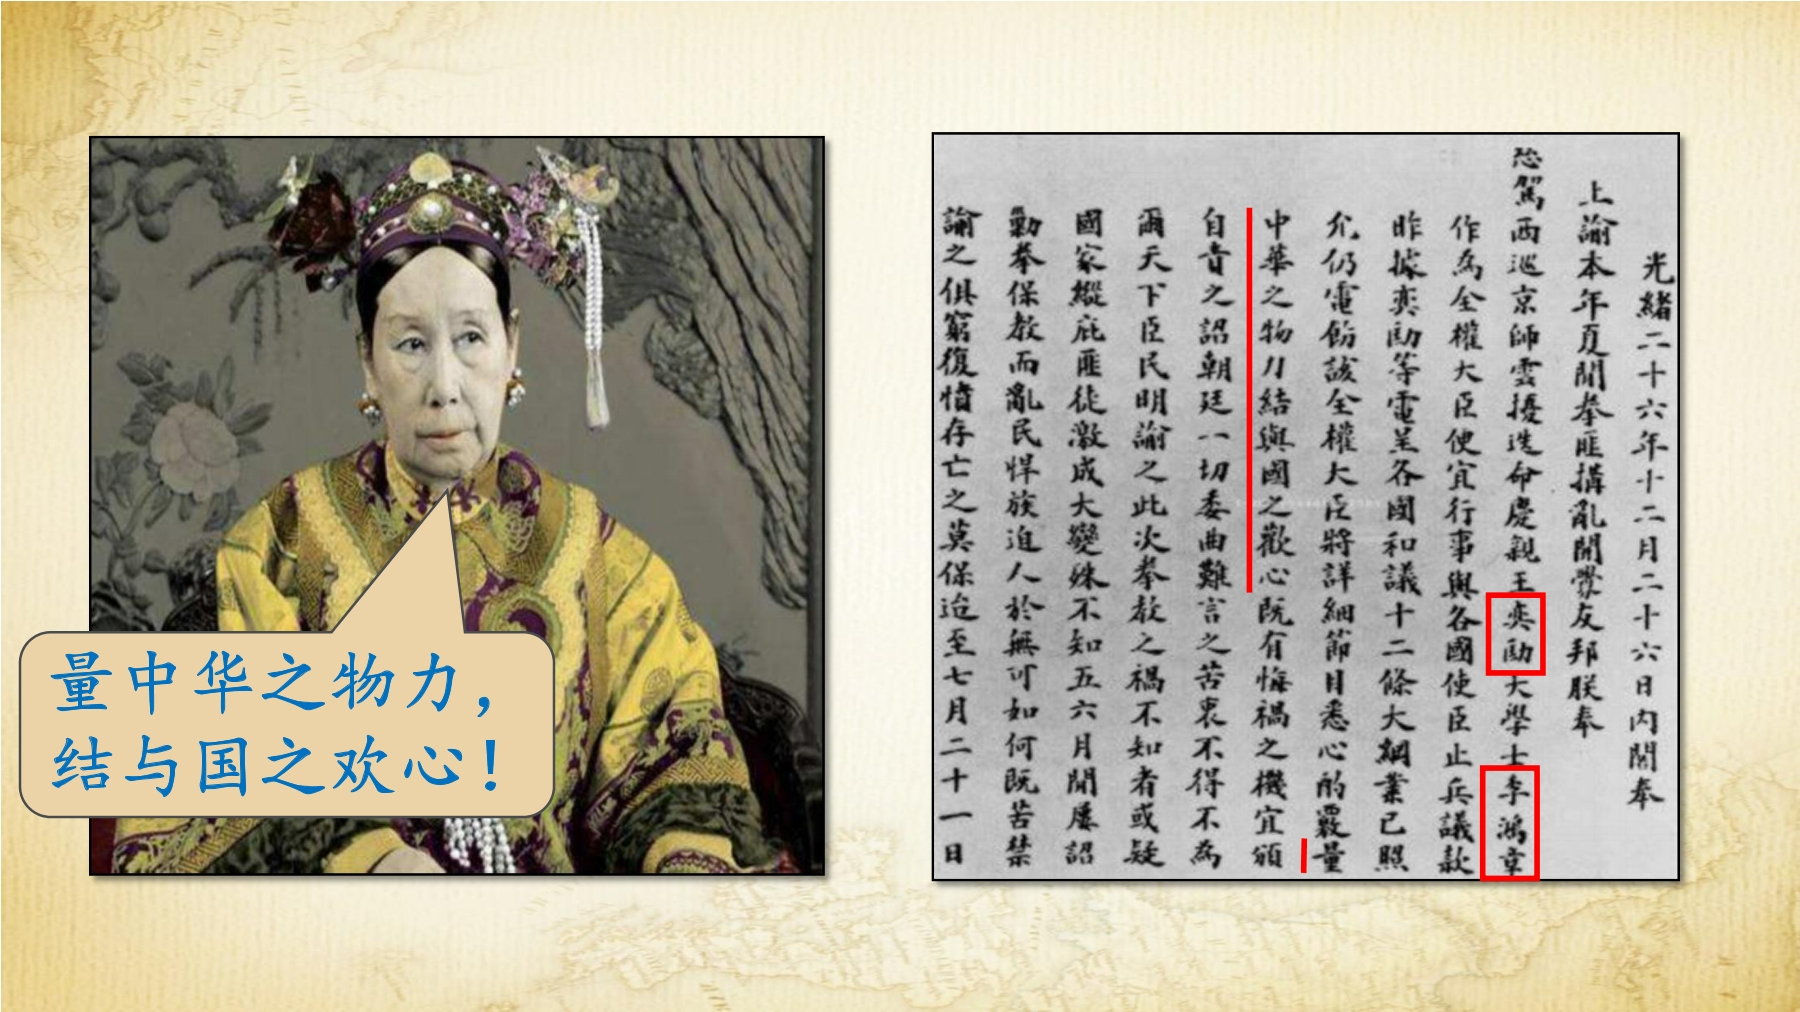 量中华之物力，
结与国之欢心！
光緒二十六年十二月二十六日內閣奉
上諭本年夏間拳匪搆亂開釁友邦朕奉
慈駕西巡京師雲擾迭命慶親王奕劻大學士李鴻章
作為全權大臣便宜行事與各國使臣止兵議款
昨據奕劻等電呈各國和議十二條大綱業已照
允仍電飭該全權大臣將詳細節目悉心酌覈量
中華之物力結與國之歡心既有悔禍之機宜頒
自責之詔朝廷一切委曲難言之苦衷不得不為
爾天下臣民明諭之此次拳教之禍不知者或疑
國家縱庇匪徒激成大變殊不知五六月間屢詔
勦拳保教而亂民悍族迫人於無可如何既苦禁
諭之俱窮復憤存亡之莫保迨至七月二十一日